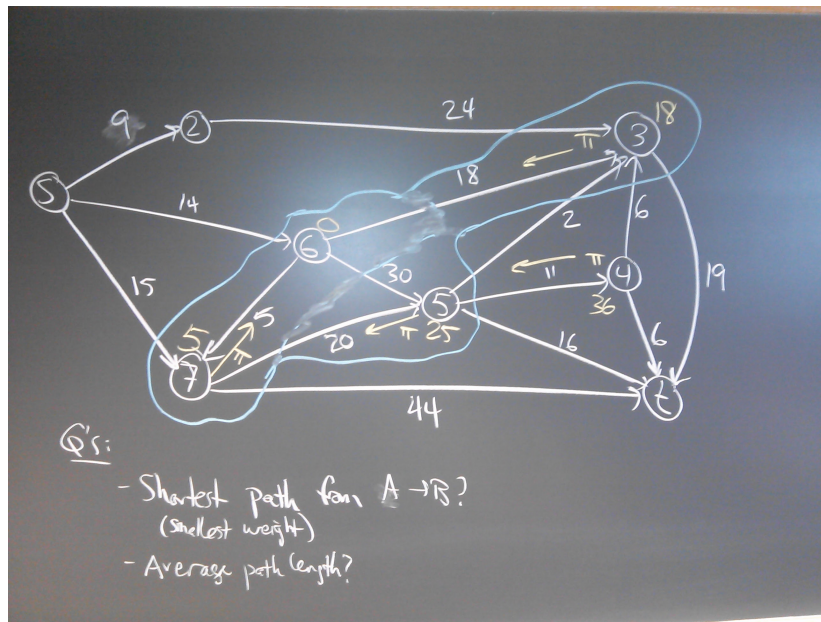 9
2
24
3
18
π
18
S
14
6
0
2
6
30
π
11
π
4
36
19
15
5
5
π
7
20
π
5
25
16
6
t
44
Q's:
- Shortest path from A → B?
(smallest weight)
- Average path length?